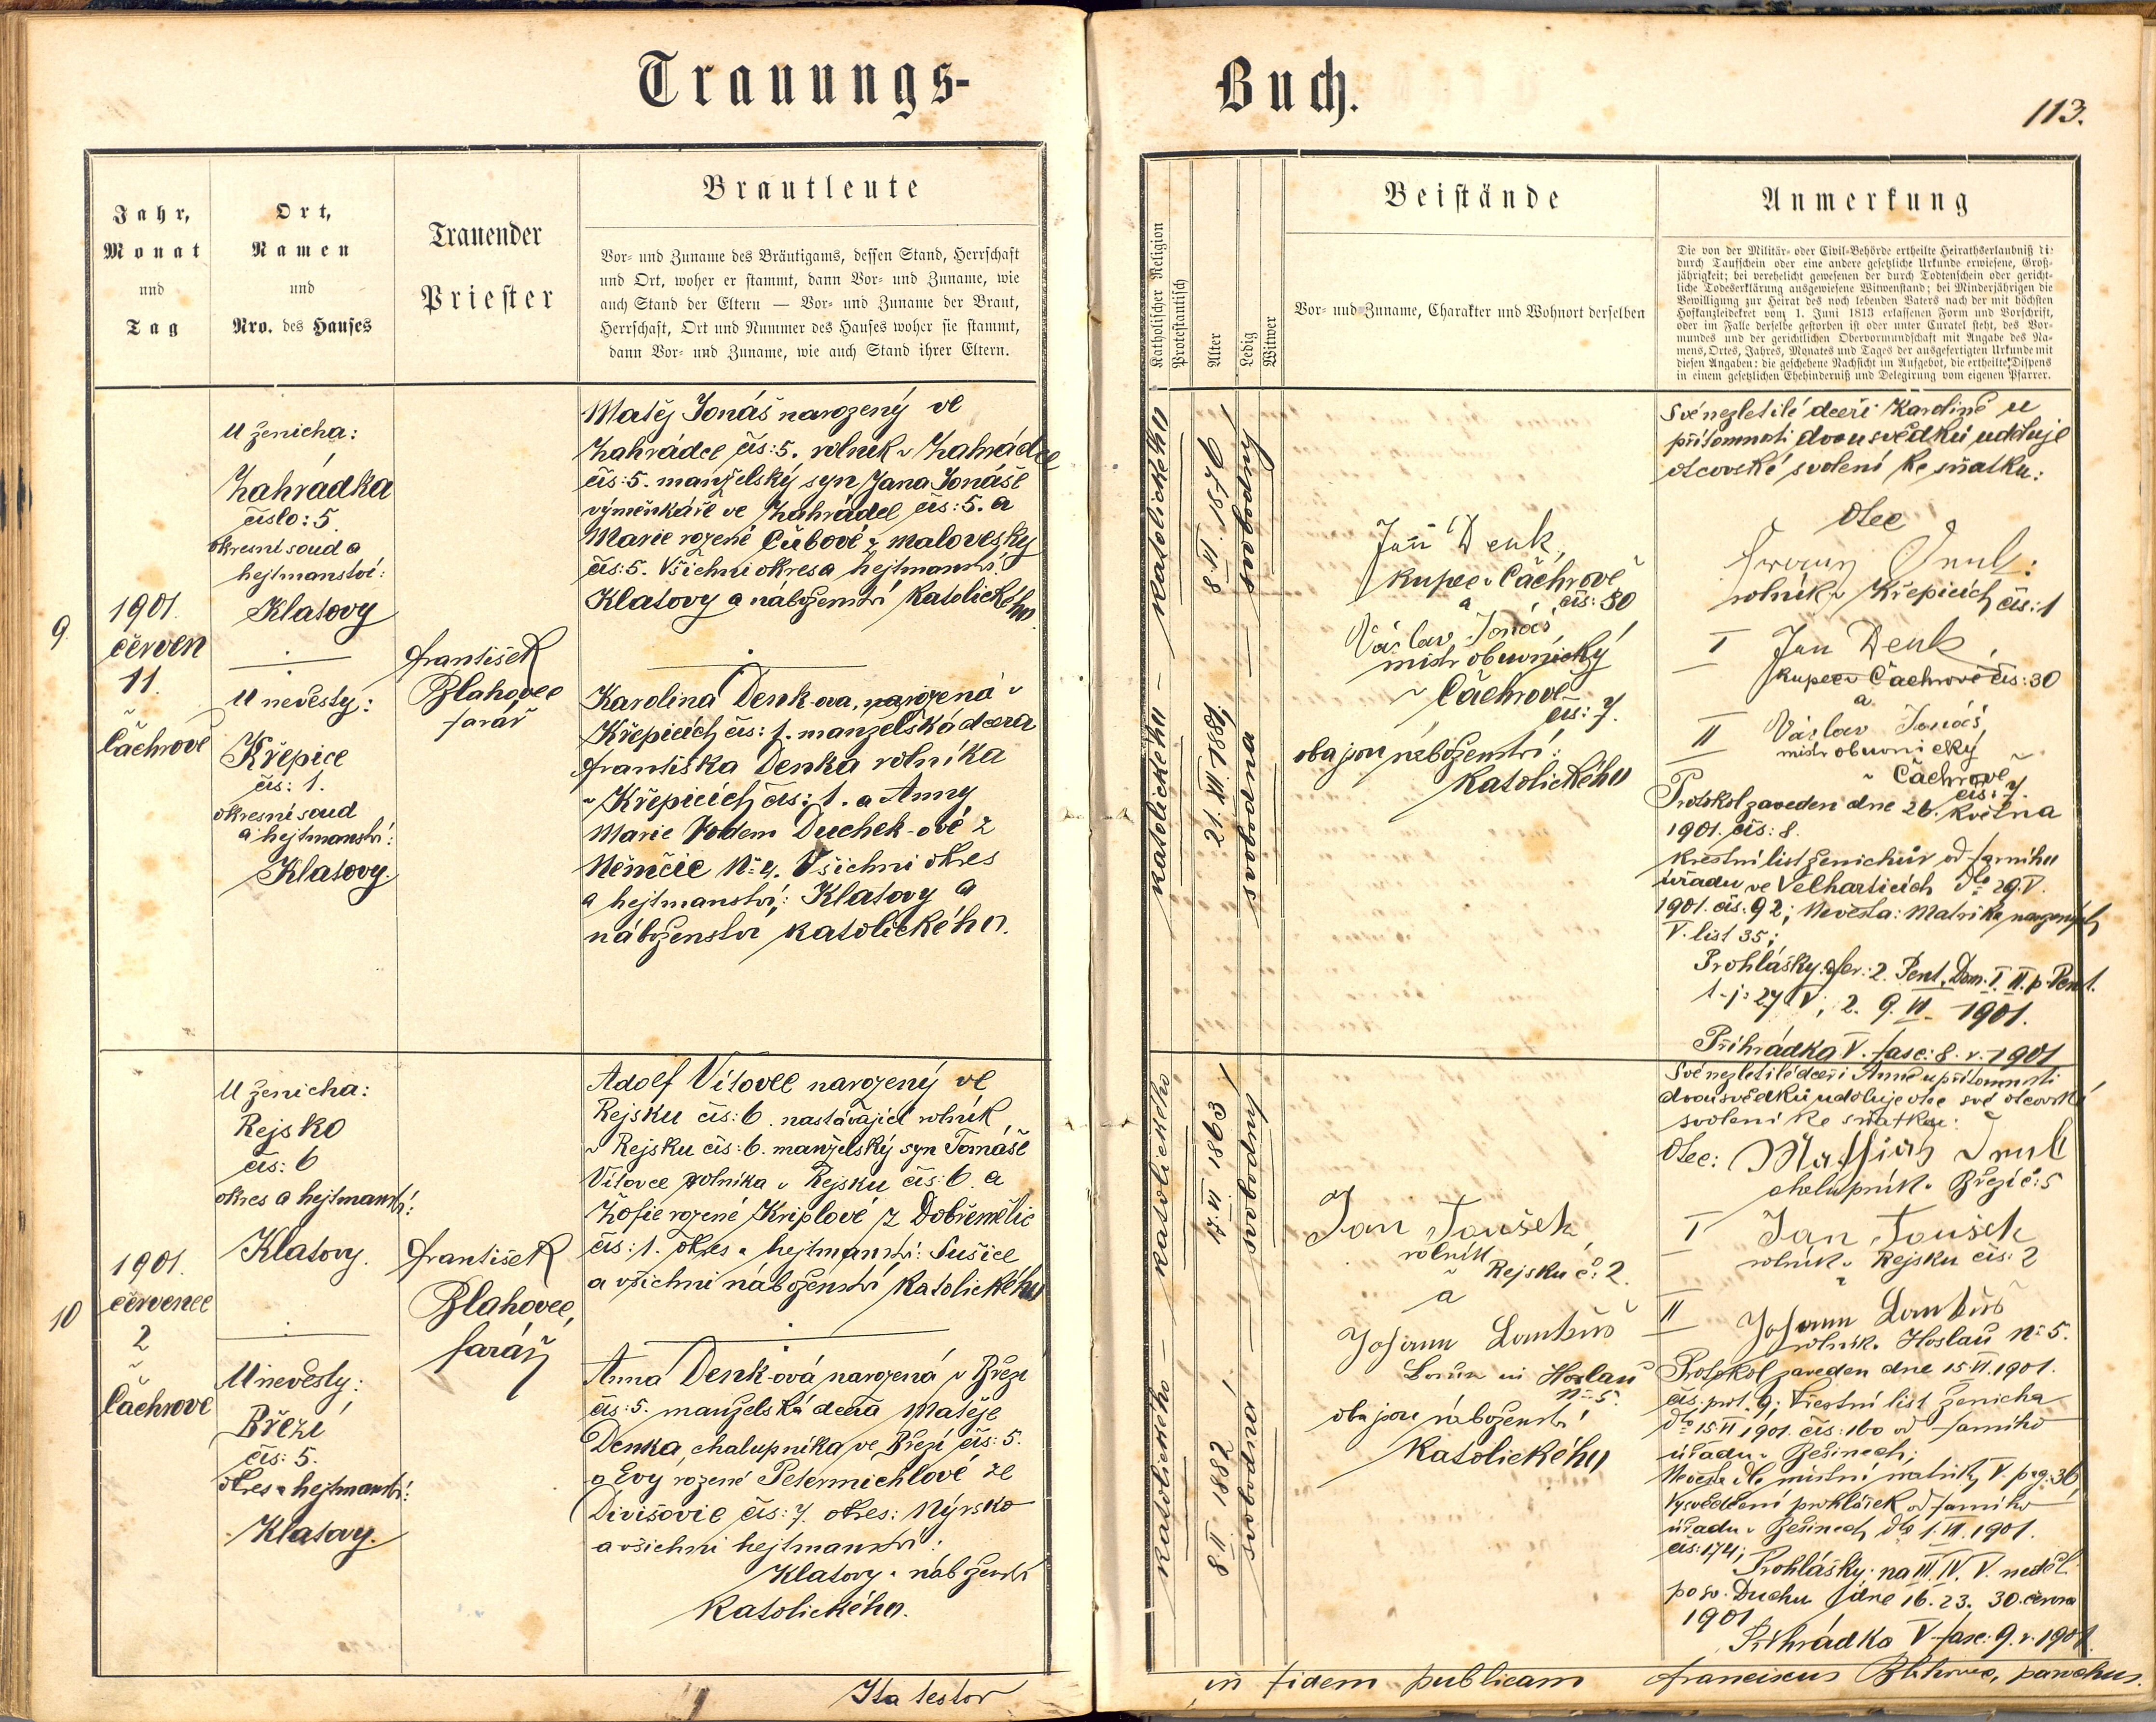 Trauungs-
Buch.
113.
Jahr,
Monat
und
Tag
Ort,
Namen
und
Nro. des Hauses
Trauender
Priester
Brautleute
Vor- und Zuname des Bräutigams, dessen Stand, Herrschaft
und Ort, woher er stammt, dann Vor- und Zuname, wie
auch Stand der Eltern — Vor- und Zuname der Braut,
Herrschaft, Ort und Nummer des Hauses woher sie stammt,
dann Vor- und Zuname, wie auch Stand ihrer Eltern.
9
1901.
červen
11.
v
Čachrově
U ženicha:
Zahrádka
číslo: 5.
okresní soud a
hejtmanství:
Klatovy
U nevěsty:
Křepice
čís: 1.
okresní soud
a hejtmanství:
Klatovy.
František
Blahovec
farář
Matěj Jonáš narozený ve
Zahrádce čís: 5. rolník v Zahrádce
čís: 5. manželský syn Jana Jonáše
výměnkáře ve Zahrádce čís: 5. a
Marie rozené Čubové z malovesky
čís: 5. Všichni okres a hejtmanství:
Klatovy a náboženství katolického.
Karolina Denk-ova, narozená v
Křepicích čís: 1. manželská dcera
Františka Denka rolníka
v Křepicích čís: 1. a Anny
Marie Vodem Duchek-ové z
Němčic N: 4. Všichni okres
a hejtmanství: Klatovy a
náboženství katolického.
10
1901.
červenec
2
v
Čachrově
U ženicha:
Rejsko
čís: 6
okres a hejtmanství:
Klatovy.
U nevěsty:
Březí
čís: 5.
okres a hejtmanství:
Klatovy.
František
Blahovec,
farář
Adolf Vítovec narozený ve
Rejsku čís: 6. nastávající rolník
v Rejsku čís: 6. manželský syn Tomáše
Vítovce rolníka v Rejsku čís: 6. a
Žofie rozené Kriplové z Dobřemělic
čís: 1. okres a hejtmanství: Sušice
a všichni náboženství katolického
Anna Denk-ová narozená v Březí
čís: 5. manželská dcera Matěje
Denka, chalupníka ve Březí čís: 5.
a Evy rozené Petermichlové ze
Divišovic čís: 7. okres: Nýrsko
a všichni hejtmanství:
Klatovy a náboženství
katolického.
Ita testor
Katholischer Religion
Protestantisch
Alter
Ledig
Witwer
Beistände
Vor- und Zuname, Charakter und Wohnort derselben
Anmerkung
Die von der Militär- oder Civil-Behörde ertheilte Heirathserlaubniß di:
durch Taufschein oder eine andere gesetzliche Urkunde erwiesene, Groß-
jährigkeit; bei verehelicht gewesenen der durch Todtenschein oder gericht-
liche Todeserklärung ausgewiesene Witwenstand; bei Minderjährigen die
Bewilligung zur Heirat des noch lebenden Vaters nach der mit höchsten
Hofkanzleidekret vom 1. Juni 1813 erlassenen Form und Vorschrift,
oder im Falle derselbe gestorben ist oder unter Curatel steht, des Vor-
mundes und der gerichtlichen Obervormundschaft mit Angabe des Na-
mens, Ortes, Jahres, Monates und Tages der ausgefertigten Urkunde mit
diesen Angaben: die geschehene Nachsicht im Aufgebot, die ertheilte Dispens
in einem gesetzlichen Ehehinderniß und Delegirung vom eigenen Pfarrer.
katolického — katolického
21. XII 1881. 8. VI. 1876
svobodna — svobodný
Jan Denk,
kupec v Čachrově
čís: 30
a
Václav Jonáš
mistr obuvnický
v Čachrově
čís: 7.
oba jsou náboženství:
katolického
Své nezletilé dceři Karolině u
přítomnosti dvou svědků uděluje
otcovské svolení ke sňatku:
Otec
Franz Denk:
rolník v Křepicích čís: 1
I Jan Denk,
kupec v Čachrově čís: 30
a
II Václav Jonáš,
mistr obuvnický
v Čachrově
čís: 7.
Protokol zaveden dne 26. května
1901. čís: 8.
Křestní list ženichův od farního
úřadu ve Velharticích dto 29. V.
1901. čís. 92; Nevěsta: Matrika narozených
V. list 35;
Prohlášky: fer: 2. Pent. Dom. I. II. p. Pent.
t. j: 27 V; 2. 9. VI. 1901.
Přihrádka V. fasc: 8. r. 1901
katolického — katolického
8. II. 1882 17. VI 1863
svobodná — svobodný
Jan Toušek,
rolník
v Rejsku č: 2.
a
Johann Lambuš
in Hoslau
N: 5.
oba jsou náboženství
katolického
Své nezletilé dceři Anně u přítomnosti
dvou svědků uděluje otec své otcovské
svolení ke sňatku:
Otec: Mathias Denk
chalupník v Březí č: 5
I Jan Toušek
rolník v Rejsku čís: 2
II Johann Lambuš
rolník v Hoslau N: 5.
Protokol zaveden dne 15. VI. 1901.
čís. prot. 9; Křestní list ženicha
dto 15. VI 1901. čís: 160 od farního
úřadu v Běšinech;
Nevěsta dle místní matriky V. pag: 36,
Vysvědčení prohlášek od farního
úřadu v Běšinech dto 1. VII. 1901.
čís: 174;
Prohlášky: na III. IV. V. neděli
po sv. Duchu dne 16. 23. 30. června
1901
Přihrádka V fasc: 9. r. 1901.
in fidem publicam Franciscus Blahovec, parochus.